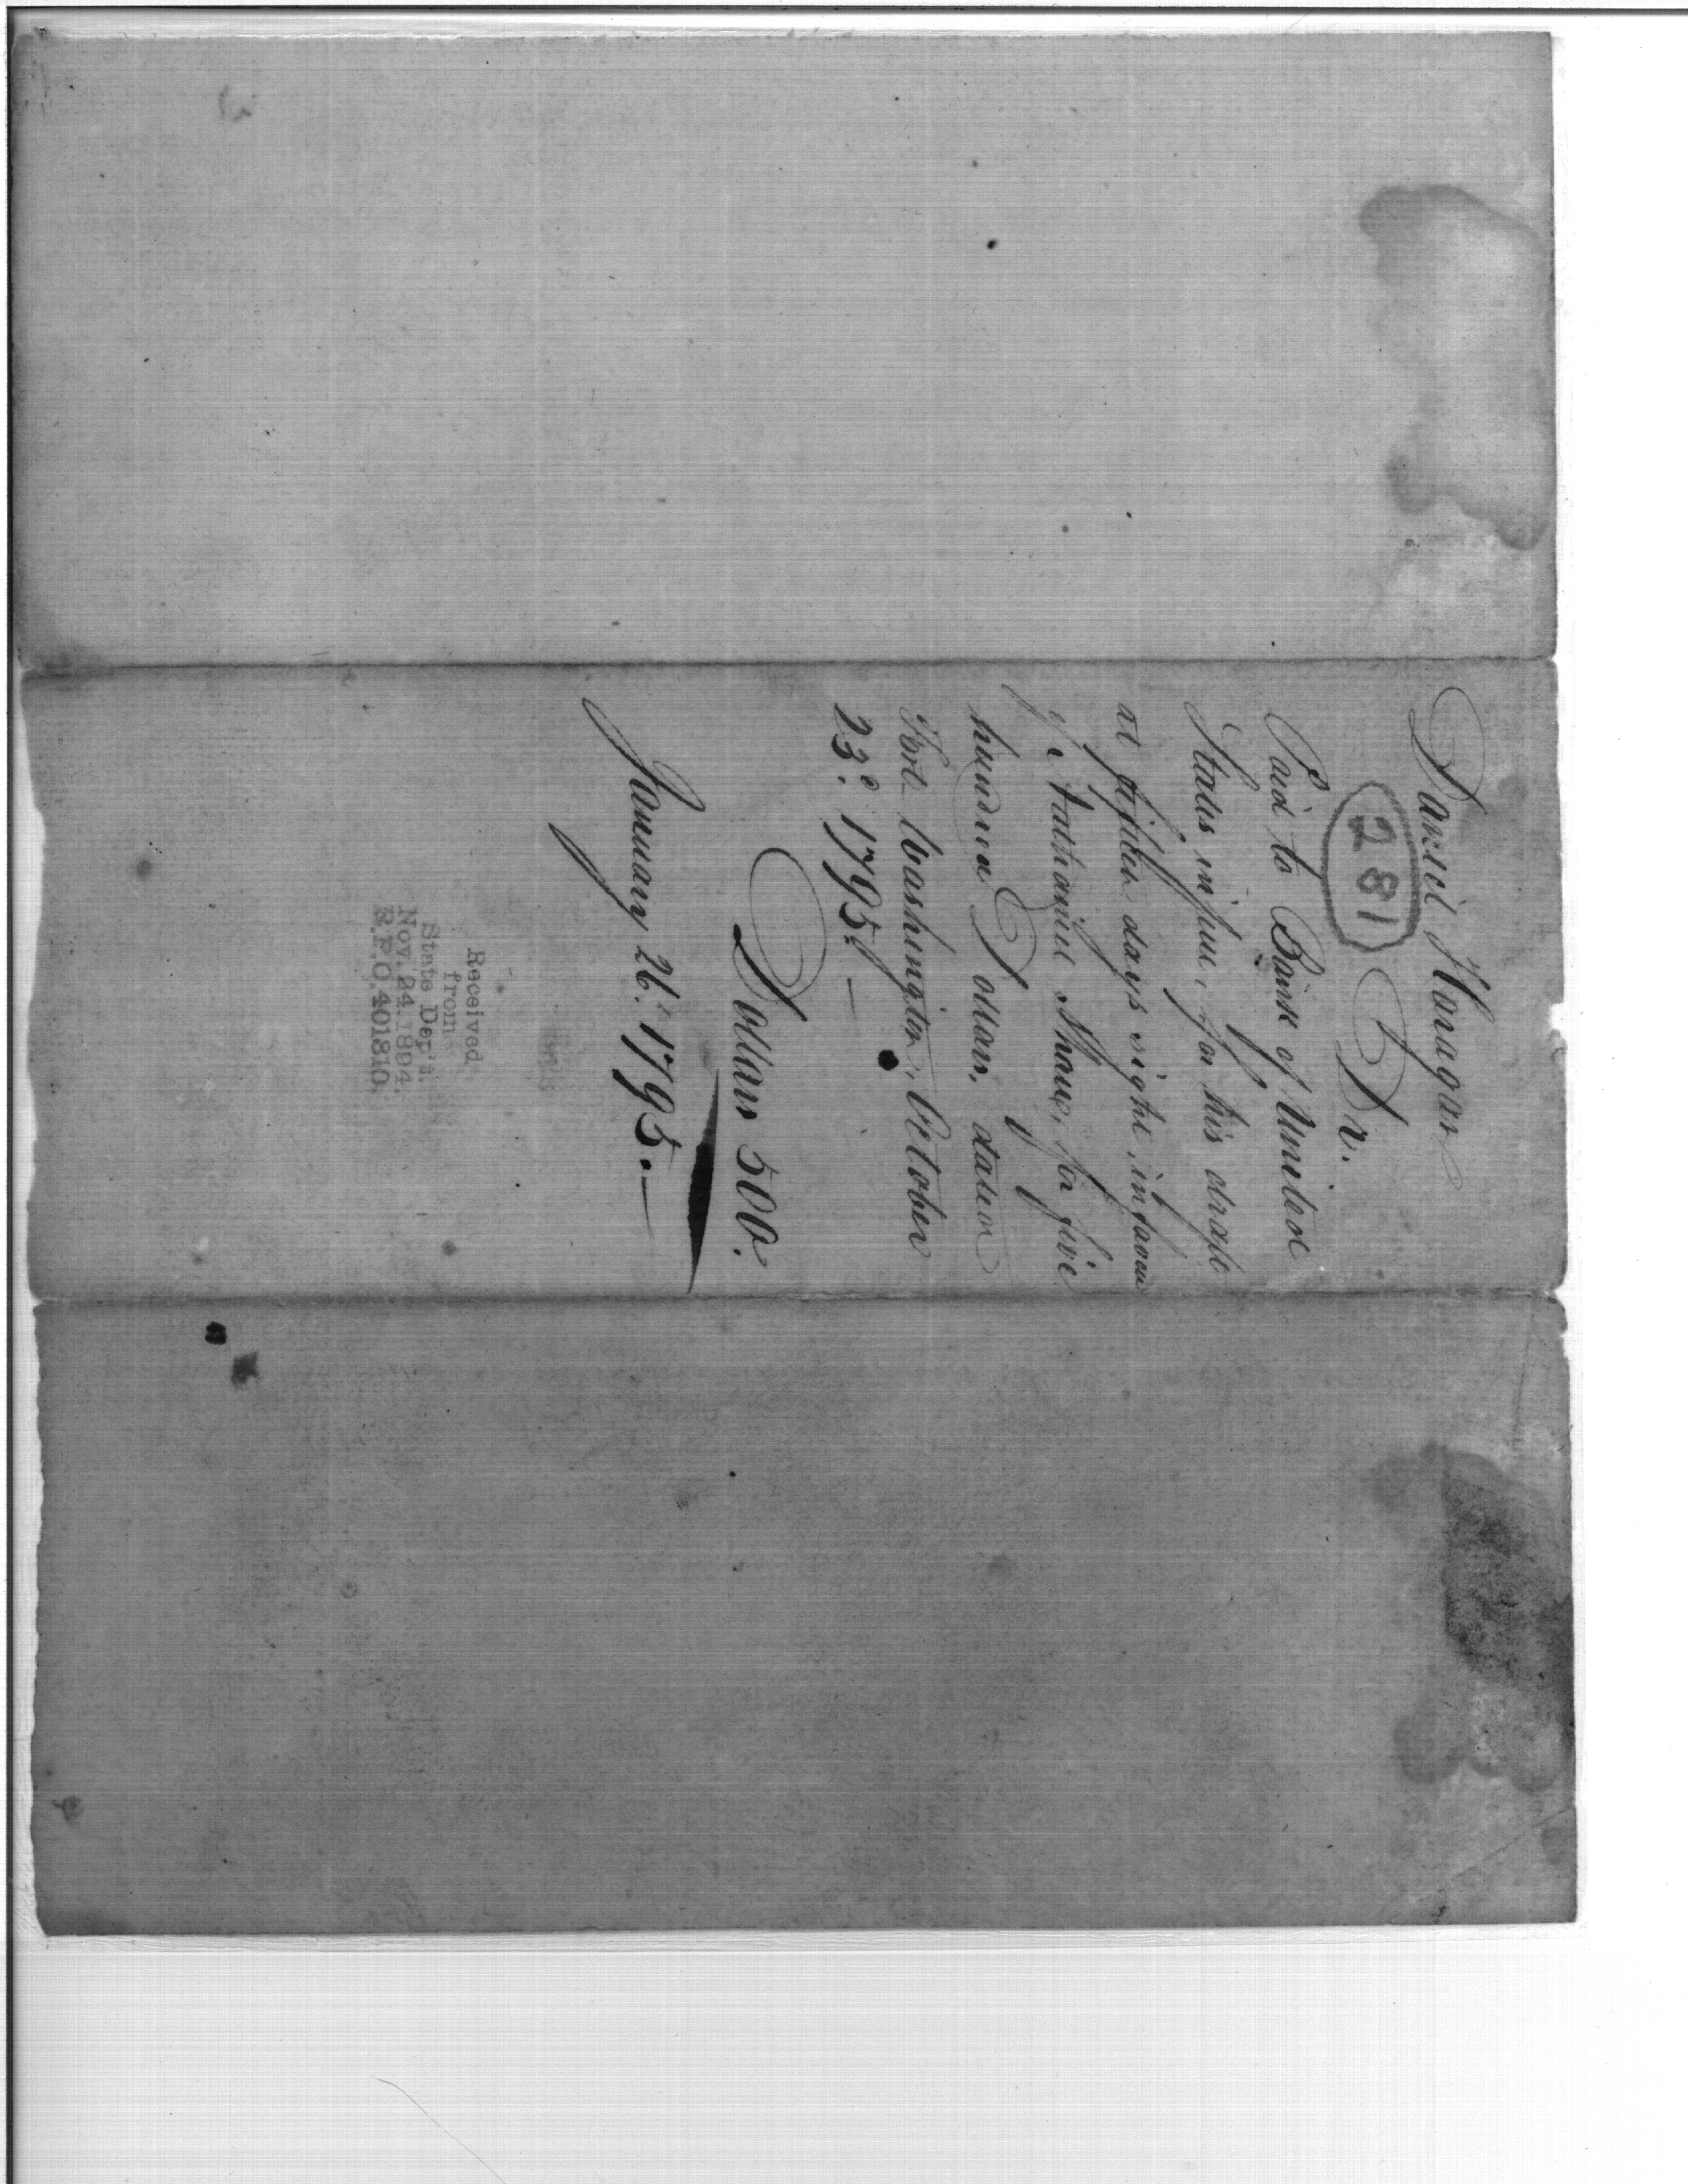 Daniel Horagan
281
Dr.
Paid to Bank of United
States in full, for his draft
at fifteen days sight, in favour
of Nathaniel Shaw, for five
hundred Dollars, dated
Fort Washington, October
23d. 1795. —
Dollars 500.
January 26. 1795. —
Received
from
State Dep't.
Nov. 24. 1894.
R.P.O. 401810.